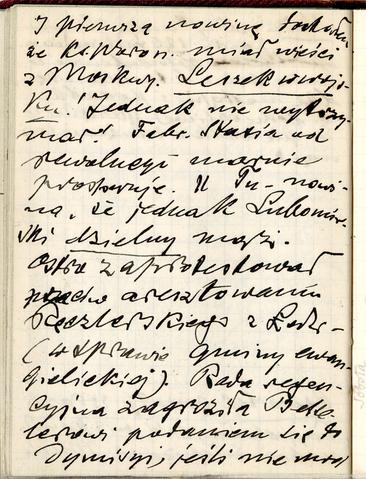 I pierwszą nowinę
że Ks. Waron. miał wieści
z Moskwy. Leszek w wojs-
ku! Jednak nie wytrzy-
mał! Febr. Stasia od
rewolucyi marnie
prosperuje. U Tu- nowi-
na, że jednak Lubomir-
ski dzielny mąż.
Ostro zaprotestował
przeciw aresztowaniu
z Łodzi-
(w sprawie gminy ewan-
gielickiej). Rada regen-
cyjna zagroziła Bese-
lerowi podaniem się do
Dymisyi, jeśli nie